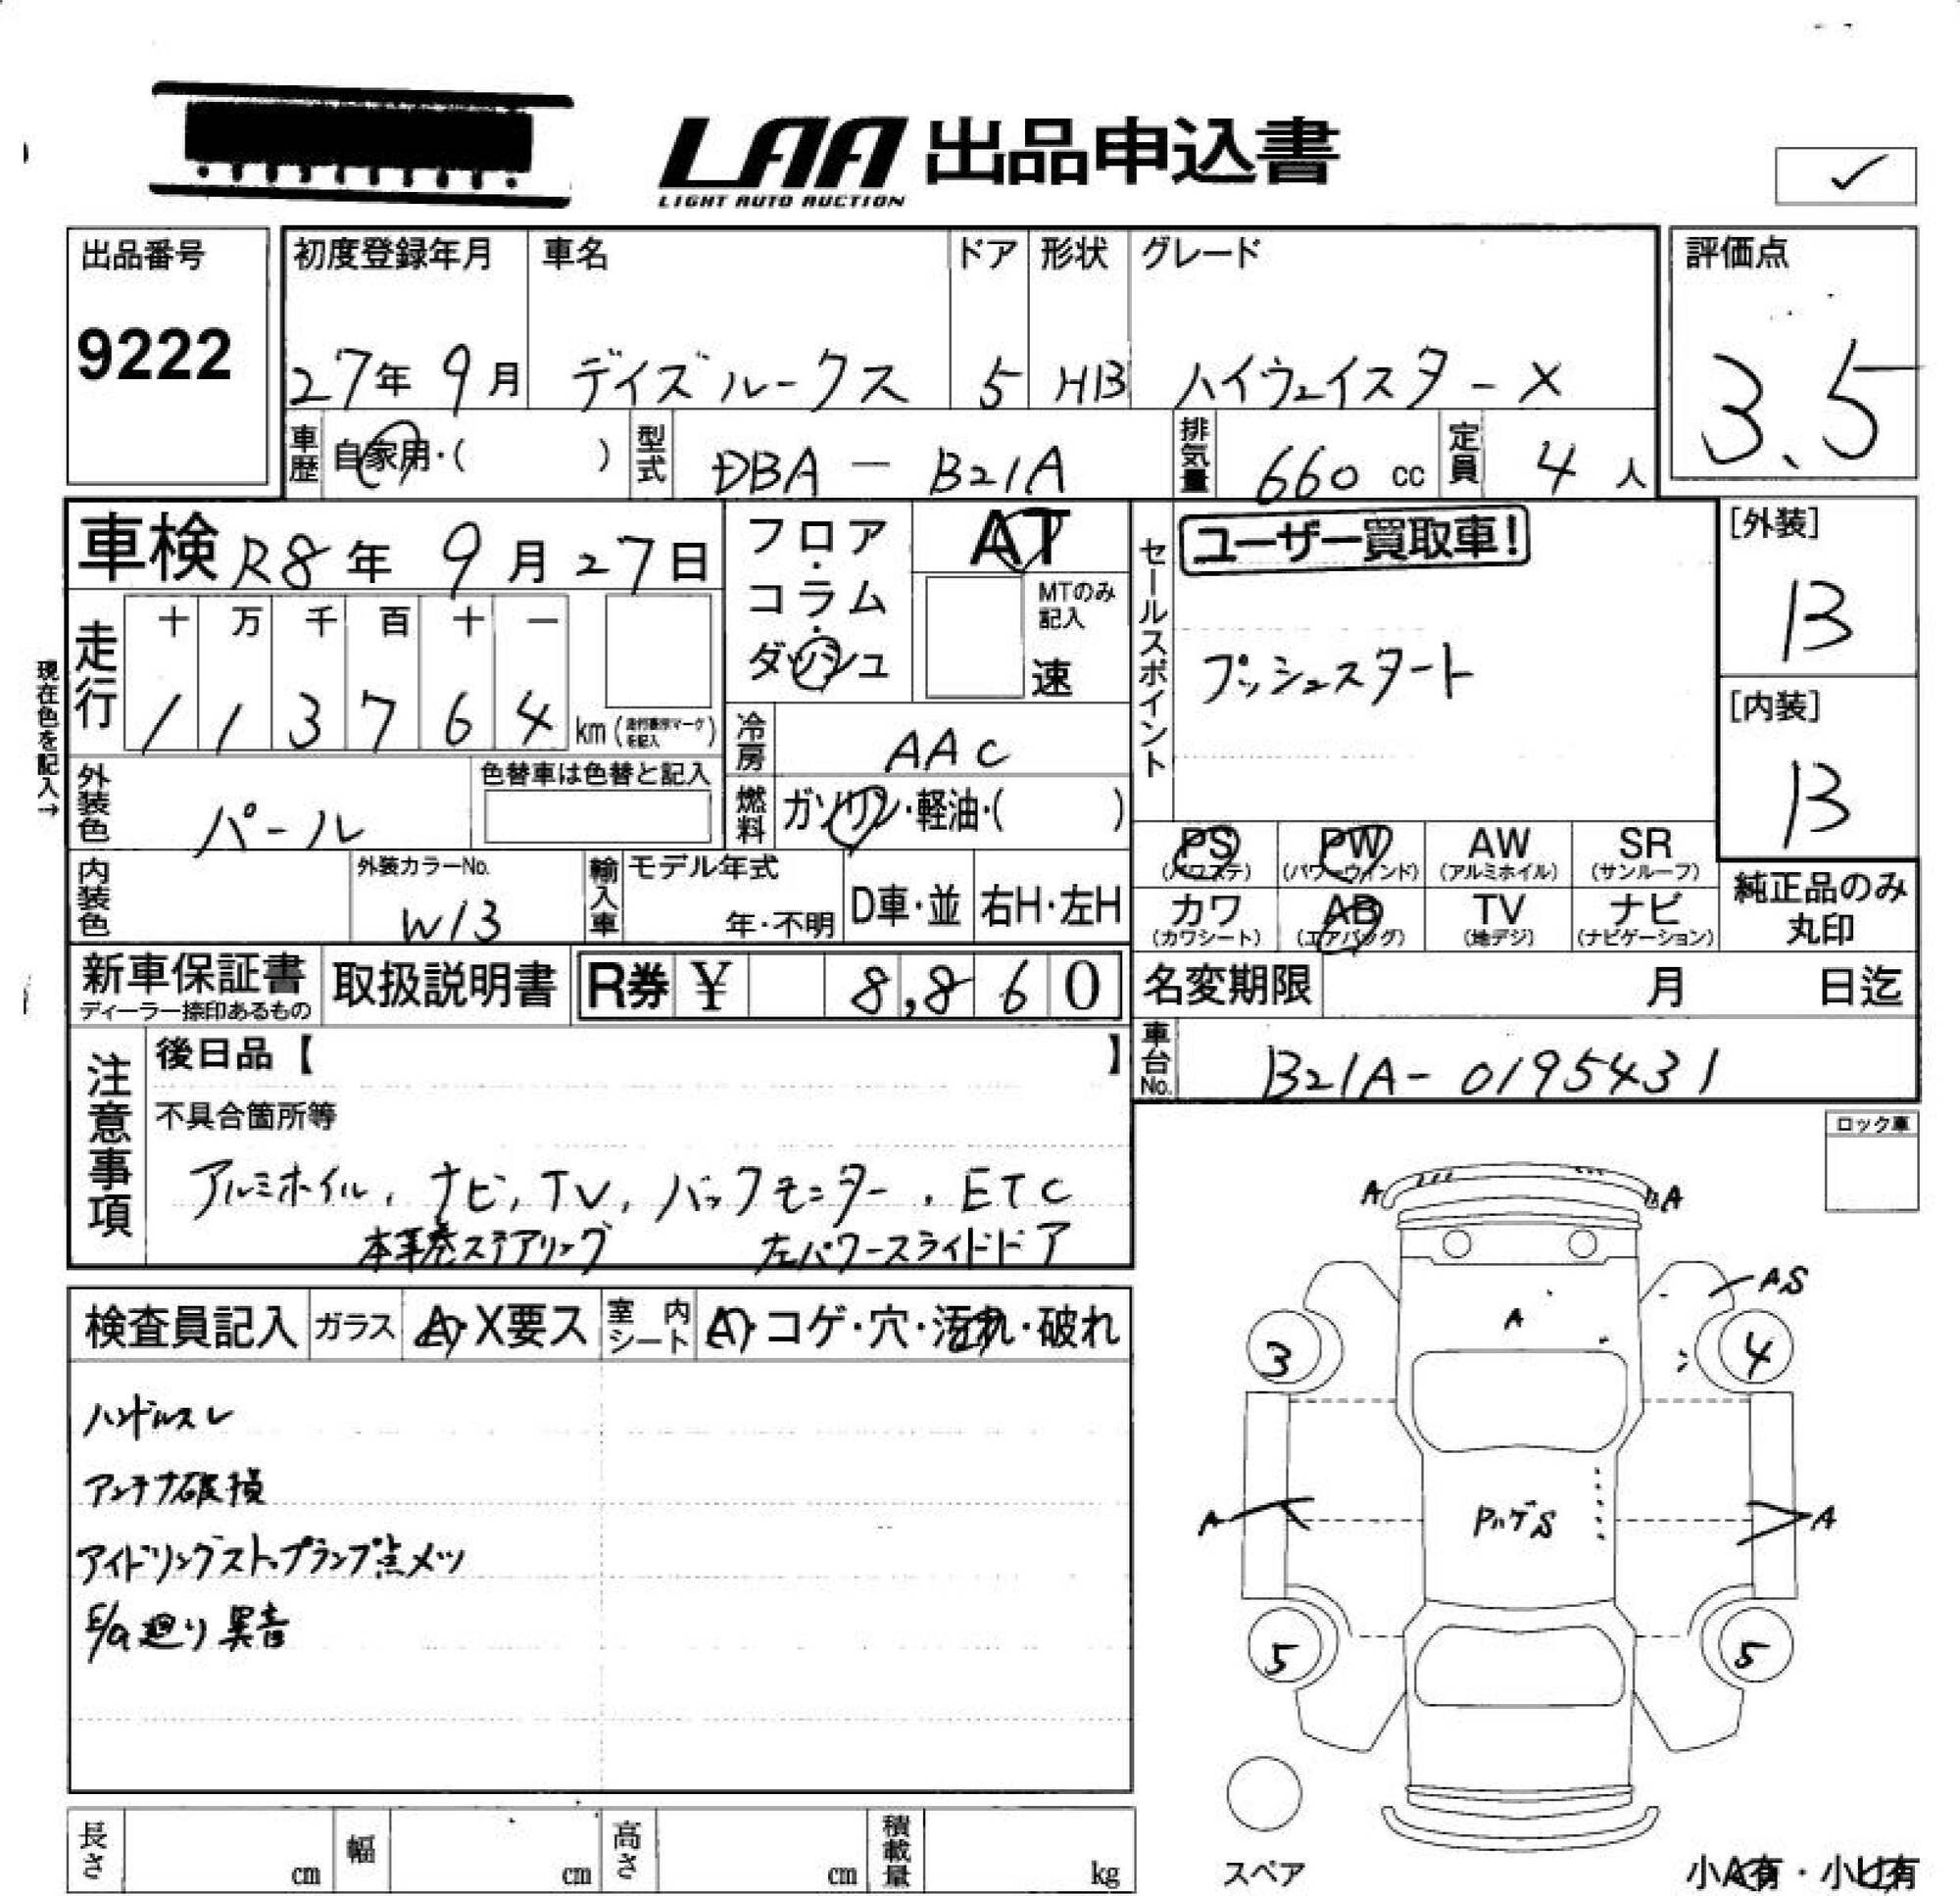 LAA 出品申込書
LIGHT AUTO AUCTION
✓
出品番号
9222
初度登録年月
27年 9月
車名
デイズルークス
ドア
5
形状
HB
グレード
ハイウェイスター X
評価点
3.5
車歴 自家用・( )
型式 DBA - B21A
排気量 660 cc
定員 4 人
車検 R8年 9月 27日
現在色を記入→
走行
十 万 千 百 十 一
1 1 3 7 6 4 km (走行表示マークを記入)
フロア・コラム・ダッシュ
AT
MTのみ記入
速
冷房 AAC
燃料 ガソリン・軽油・( )
セールスポイント
ユーザー買取車!
プッシュスタート
[外装]
B
[内装]
B
外装色 パール
色替車は色替と記入
内装色
外装カラーNo.
W13
輸入車 モデル年式
年・不明
D車・並
右H・左H
PS (パワステ)
PW (パワーウィンド)
AW (アルミホイル)
SR (サンルーフ)
カワ (カワシート)
AB (エアバッグ)
TV (地デジ)
ナビ (ナビゲーション)
純正品のみ丸印
新車保証書
ディーラー捺印あるもの
取扱説明書
R券 ¥ 8,860
名変期限 月 日迄
車台No. B21A-0195431
注意事項
後日品【 】
不具合箇所等
アルミホイル, ナビ, TV, バックモニター, ETC
本革巻ステアリング 左パワースライドドア
ロック車
検査員記入
ガラス A・X要ス
室内シート A・コゲ・穴・汚れ・破れ
ハンドルスレ
アンテナ破損
アイドリングストップランプ点メツ
E/G廻り異音
A A
AS
A
3 4
A PハゲS A
5 5
スペア
小A有・小U有
長さ cm
幅 cm
高さ cm
積載量 kg